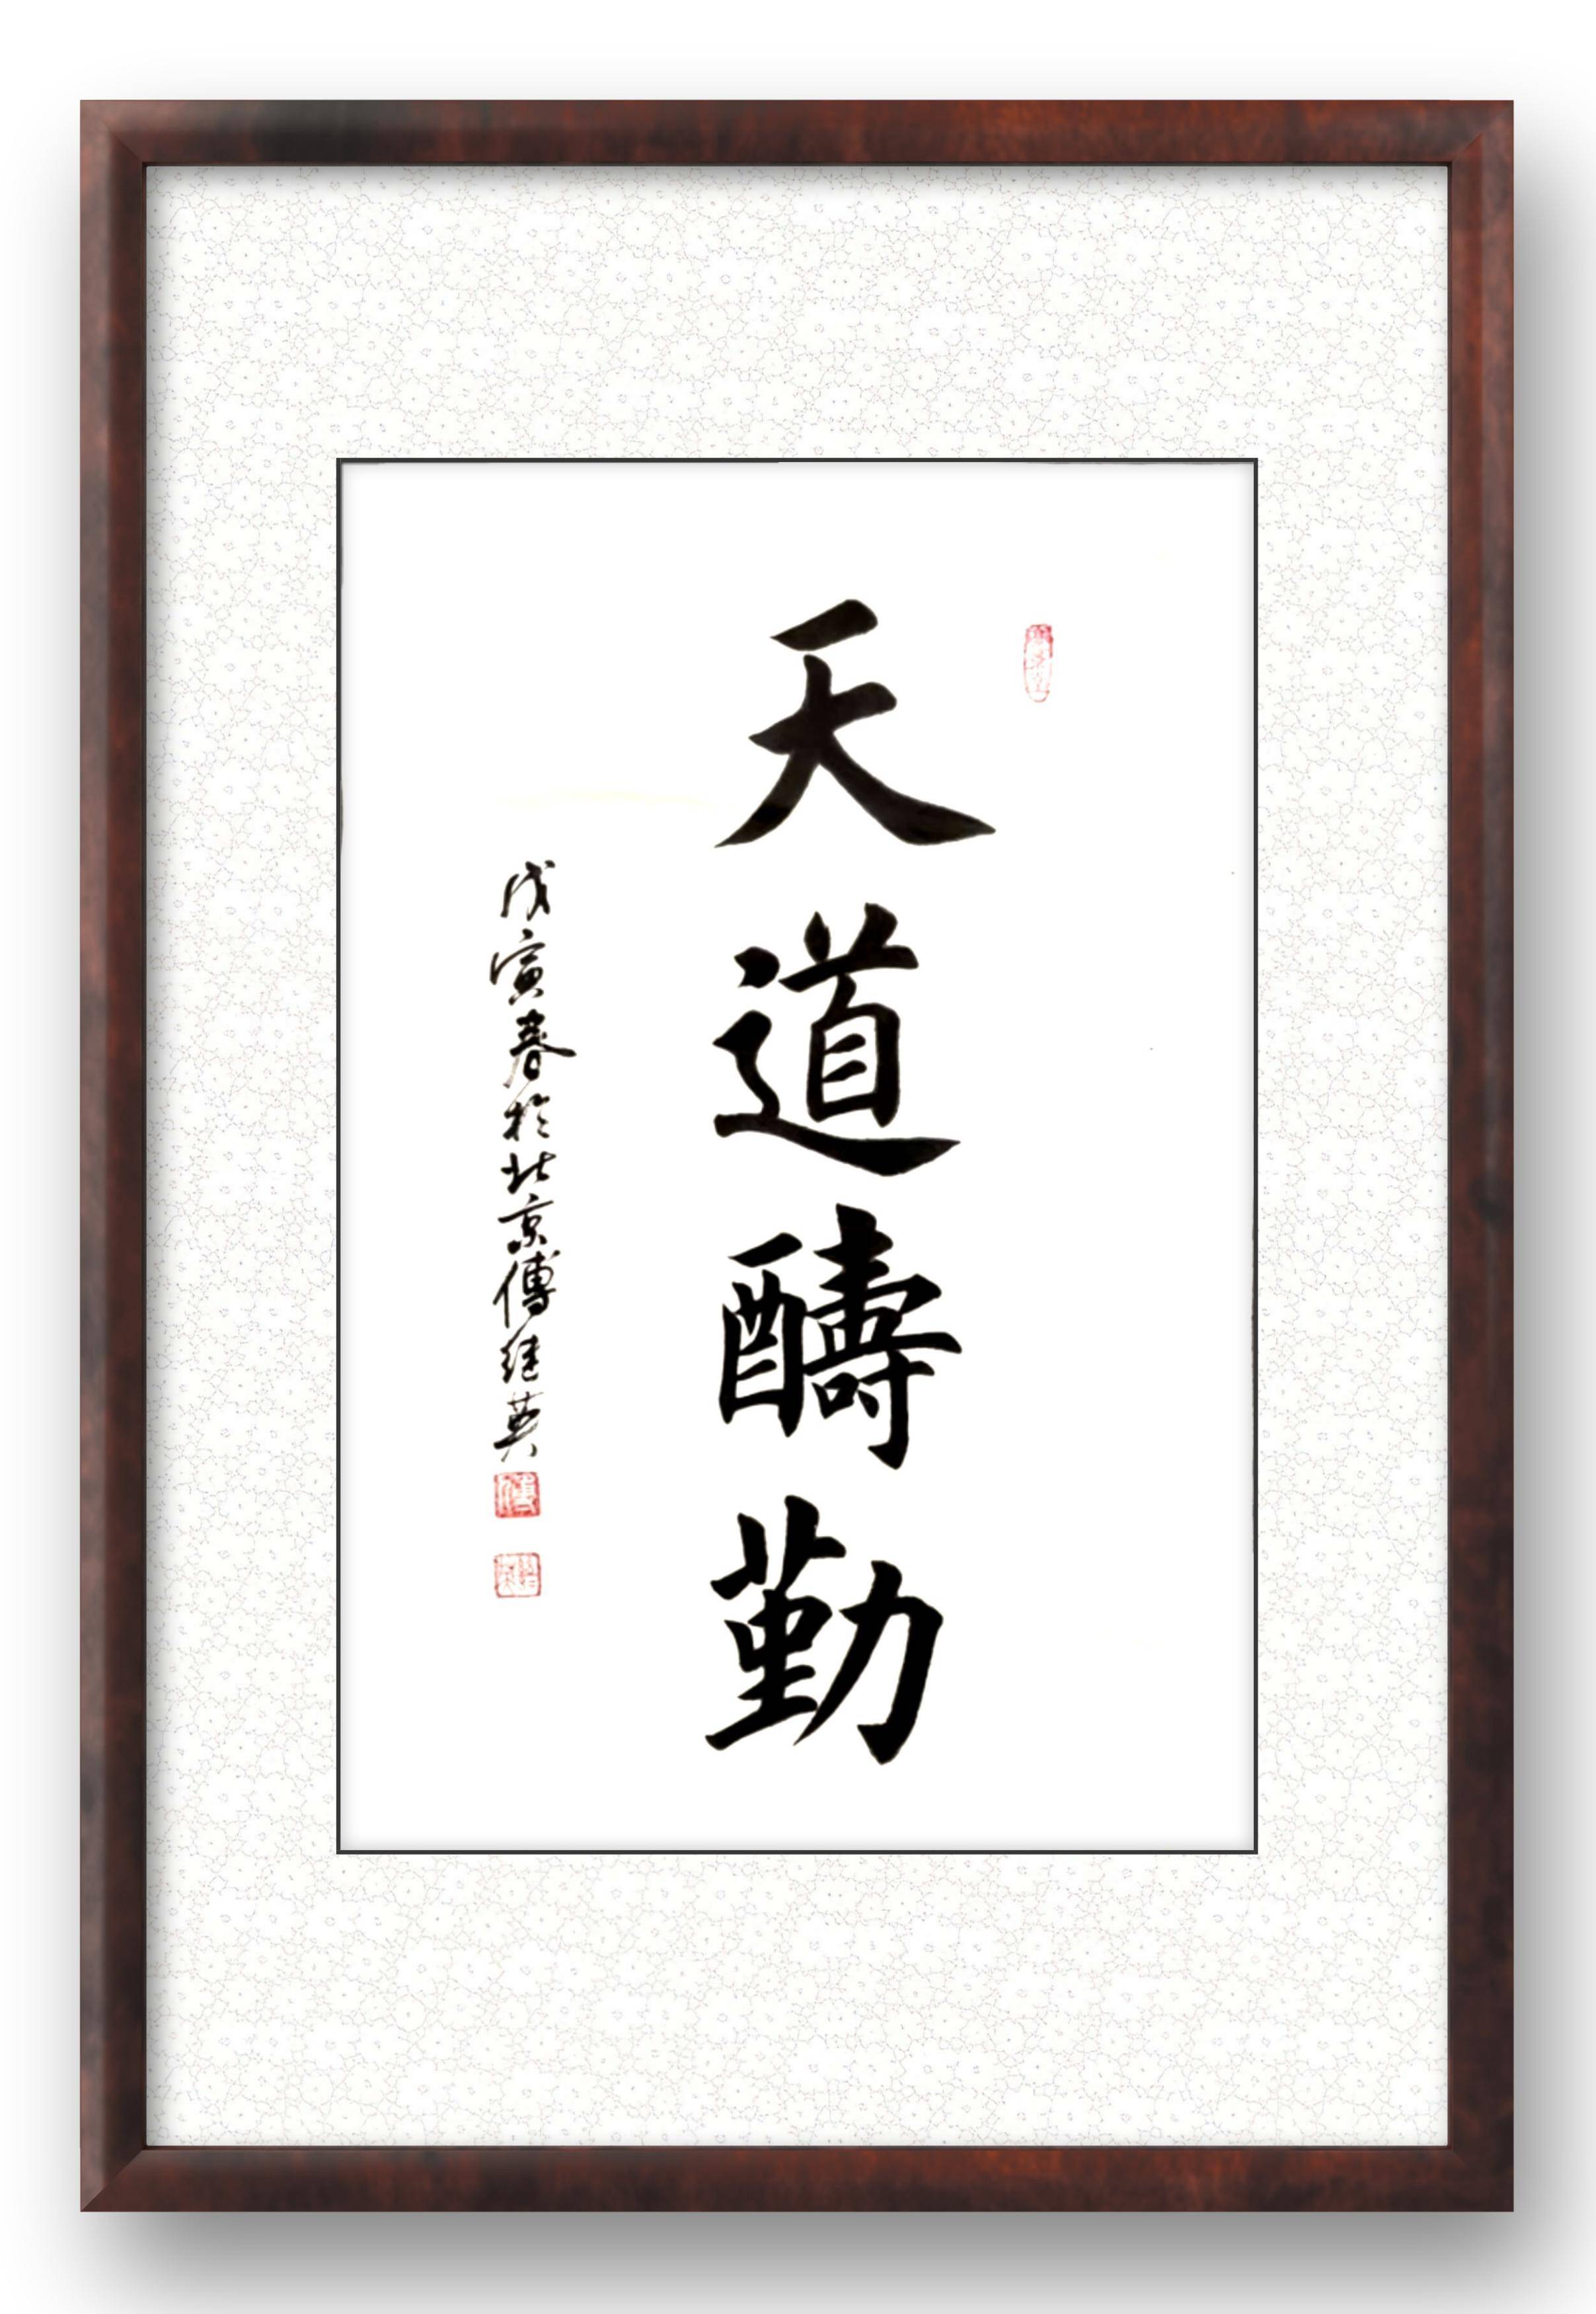 天道醻勤
戊寅春於北京傅继英